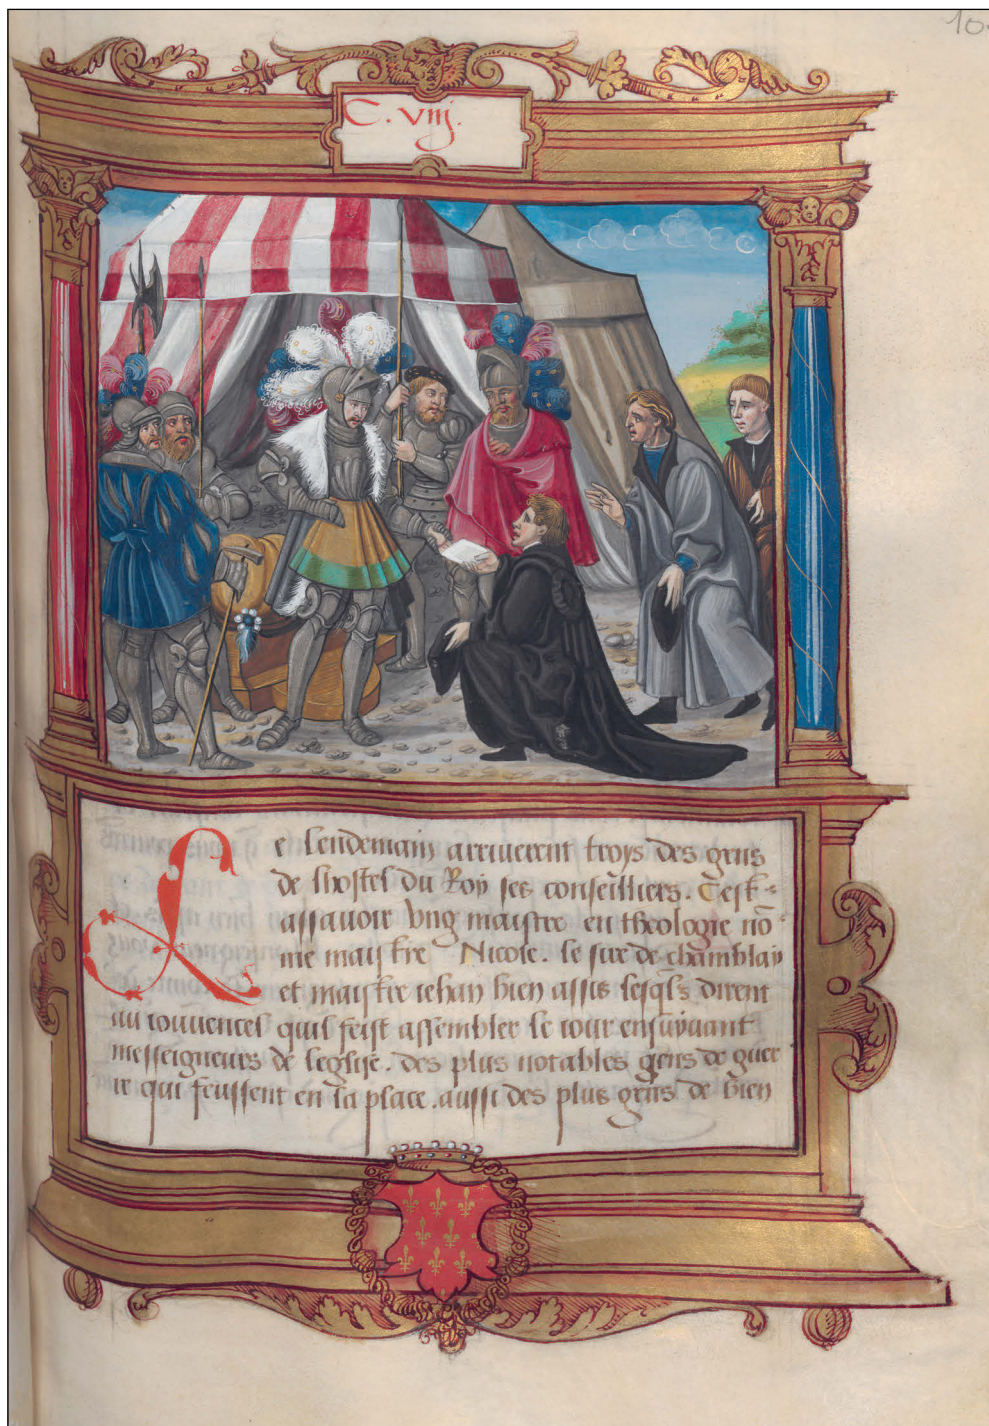 C. viij.
Le lendemain arriverent troys des gens
de lhostel du Roy ses conseilliers. Cest
assavoir vng maistre en theologie nō
me maistre Nicole. le sire de chamblay
et maistre iehan bien assis lesq̄ls dirent
au iouvencel quil feist assembler le iour ensuyuant
messeigneurs de leglise. des plus notables gens de guer
re qui feussent en la place. aussi des plus gens de bien